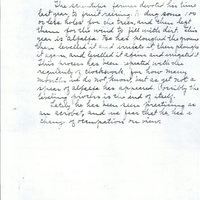 The scientific farmer devoted his time
last year, to fruit raising & dug some, 100
or less holes for the trees, and then left
them for the wind to fill with dirt. This
year is alfalfa. He has ploughed the ground
then levelled it and irrigated it then ploughed
it again and levelled it again and irrigated it
This process has been repeated with the
regularity of clockwork, for how many
months we do not know, but as yet not a
spear of alfalfa has appeared. Possibly the
leveling process is the end of itself.
Lately he has been practising as
an acrobat, and we fear that he has a
change of occupation in view.